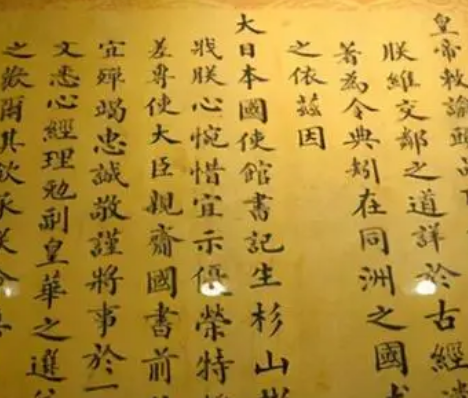 皇帝敕諭頭品
朕維交鄰之道詳於古經
著為令典矧在同洲之國
之依茲因
大日本國使館書記生杉山彬
戕朕心惋惜宜示優榮特
差專使大臣親齎國書前
宜殫竭忠誠敬謹將事於一
文悉心經理勉副皇華之選
之欽爾其欽承朕命